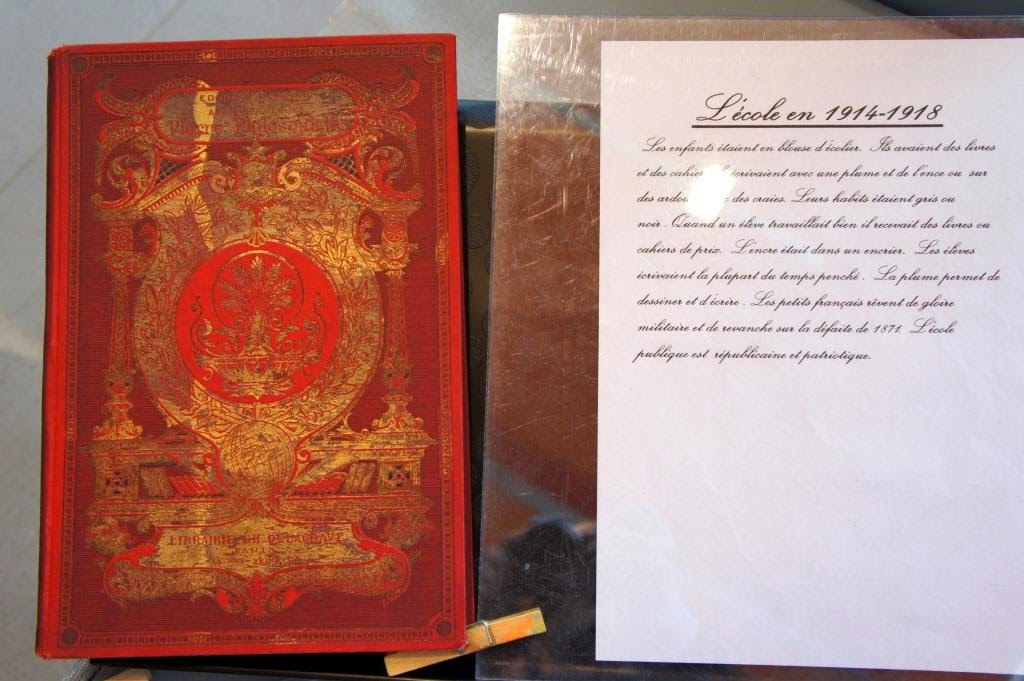 Pierre Philosophale
LIBRAIRIE CH. DELAGRAVE
PARIS
L'école en 1914-1918
Les enfants étaient en blouse d'écolier. Ils avaient des livres
et des cahiers écrivaient avec une plume et de l'ence ou sur
des des craies. Leurs habits étaient gris ou
noir. Quand un élève travaillait bien il recevait des livres ou
cahiers de prix. L'encre était dans un encrier. Les élèves
écrivaient la plupart du temps penché. La plume permet de
dessiner et d'écrire. Les petits français rêvent de gloire
militaire et de revanche sur la défaite de 1871. L'école
publique est républicaine et patriotique.